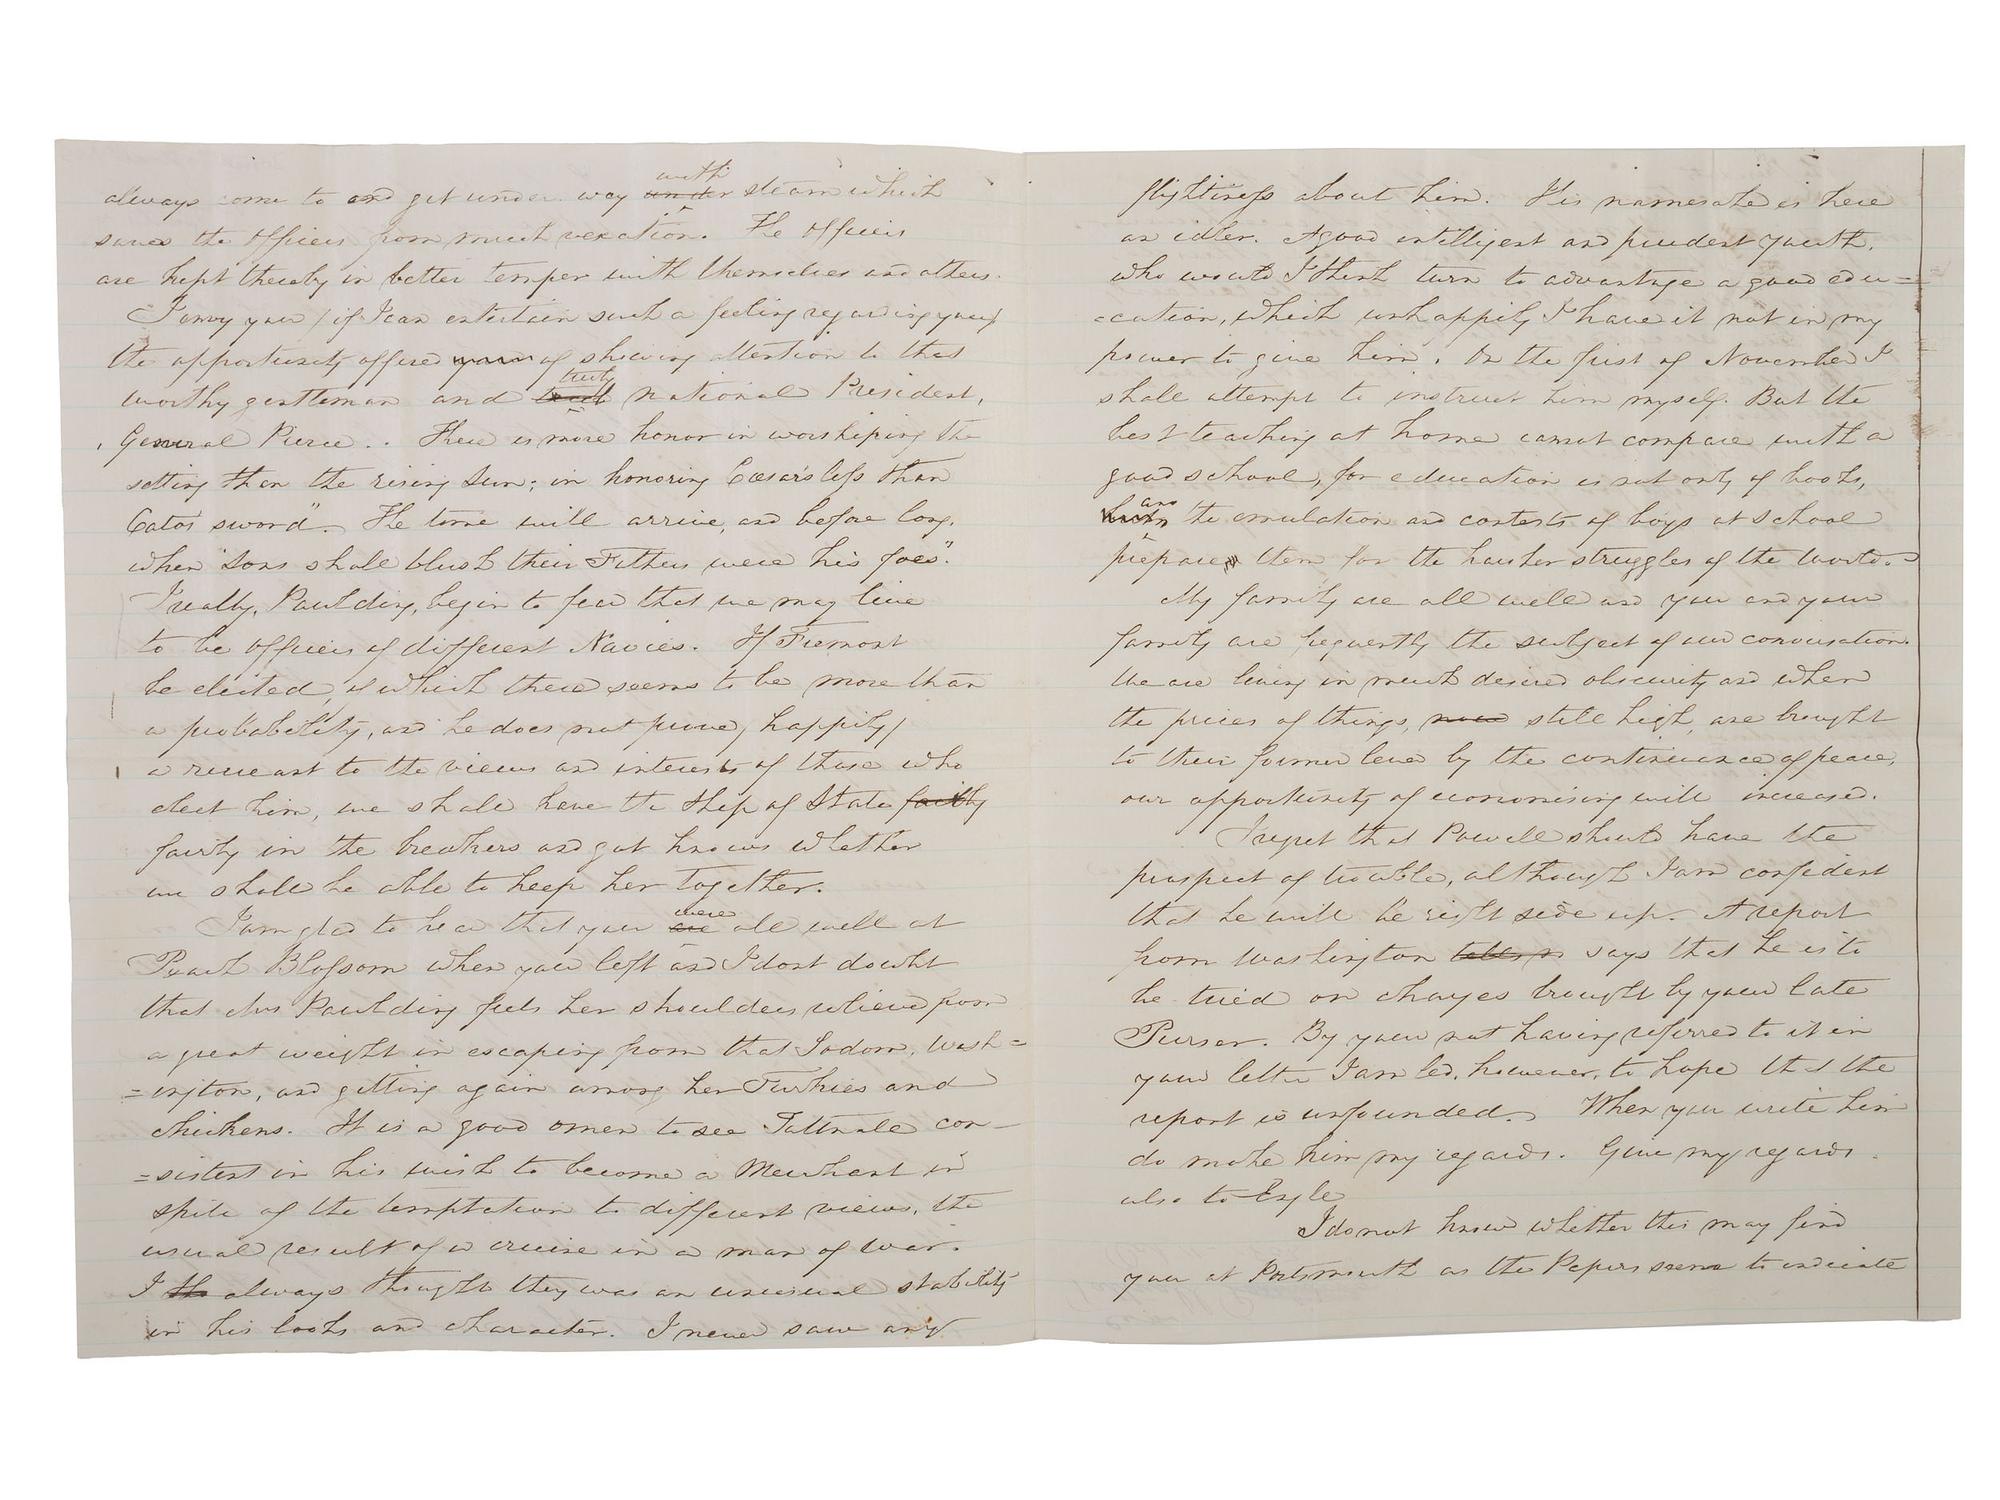 always come to and get under way with under steam which
saves the officers from much vexation. The officers
are kept thereby in better temper with themselves and others.
I envy you (if I can entertain such a feeling regarding you)
the opportunity offered of shewing attention to that
worthy gentleman and truly national President,
General Pierce. There is more honor in worshiping the
setting than the rising Sun; in honoring Cæsar's less than
Catos sword". The time will arrive, and before long,
when "Sons shall blush their Fathers were his foes".
I really, Paulding, begin to fear that we may live
to be officers of different Navies. If Fremont
be elected, of which there seems to be more than
a probability, and he does not prove, happily,
a recreant to the views and interests of those who
elect him, we shall have the Ship of State fairly
fairly in the breakers and god knows whether
we shall be able to keep her together.
I am glad to hear that you were are all well at
Peach Blossom when you left and I dont doubt
that Mrs Paulding feels her shoulders relieved from
a great weight in escaping from that Sodom, Wash=
=ington, and getting again among her Turkies and
chickens. It is a good omen to see Tattnall con-
=sistent in his wish to become a Merchant in
spite of the temptation to different views, the
usual result of a cruise in a man of war.
I th always thought they was an unusual stability
in his looks and character. I never saw any
flightiness about him. His namesake is here
an idler. A good intelligent and prudent youth,
who would I think turn to advantage a good edu=
=cation, which unhappily I have it not in my
power to give him. On the first of November I
shall attempt to instruct him myself. But the
best teaching at home cannot compare with a
good school, for education is not only of books,
and the emulation and contests of boys at school
prepare them for the harsher struggles of the world.
My family are all well and you and your
family are frequently the subject of our conversation.
We are living in much desired obscurity and when
the prices of things, now still high, are brought
to their former level by the continuance of peace,
our opportunity of economising will increased.
I regret that Powell should have the
prospect of trouble, although I am confident
that he will be right side up. A report
from Washington tells us says that he is to
be tried on charges brought by your late
Purser. By your not having referred to it in
your letter I am led, however, to hope that the
report is unfounded. When you write him
do make him my regards. Give my regards
also to Engle
I do not know whether this may find
you at Portsmouth as the Papers seem to indicate